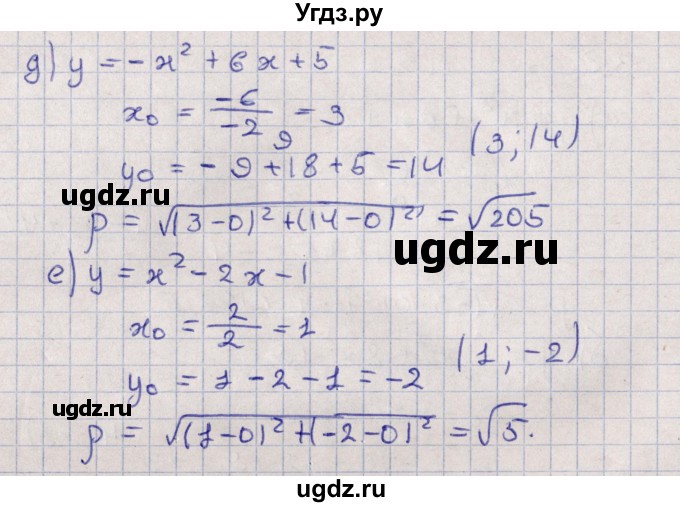 Угдз.ру
д) y = -x² + 6x + 5
x₀ = -6/-2 = 3
9
(3; 14)
y₀ = -9 + 18 + 5 = 14
ugdz.ru
ugdz.ru
ρ = √((3-0)² + (14-0)²) = √205
ugdz.ru
е) y = x² - 2x - 1
x₀ = 2/2 = 1
(1; -2)
y₀ = 1 - 2 - 1 = -2
ugdz.ru
ρ = √((1-0)² + (-2-0)² = √5.
ugdz.ru
ugdz.ru